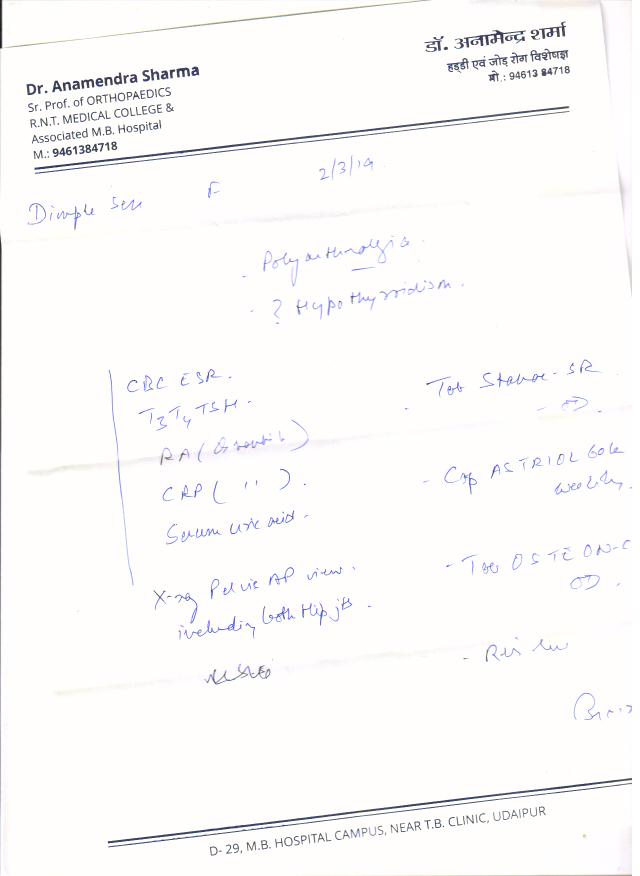 Dr. Anamendra Sharma
Sr. Prof. of ORTHOPAEDICS
R.N.T. MEDICAL COLLEGE &
Associated M.B. Hospital
M.: 9461384718
डॉ. अनामेन्द्र शर्मा
हड्डी एवं जोड़ रोग विशेषज्ञ
मो.: 94613 84718
Dimple Sen F 2/3/19
- Polyarthralgia.
- ? Hypothyroidism.
CBC ESR.
T3 T4 TSH.
RA (
CRP ( '' ).
Serum uric acid -
X-ray Pelvis AP view.
including both Hip jts.
- Tab SR
- OD.
- Cap ASTRIOL 60k
weekly.
- Tab OSTEON-C
OD.
-
D- 29, M.B. HOSPITAL CAMPUS, NEAR T.B. CLINIC, UDAIPUR